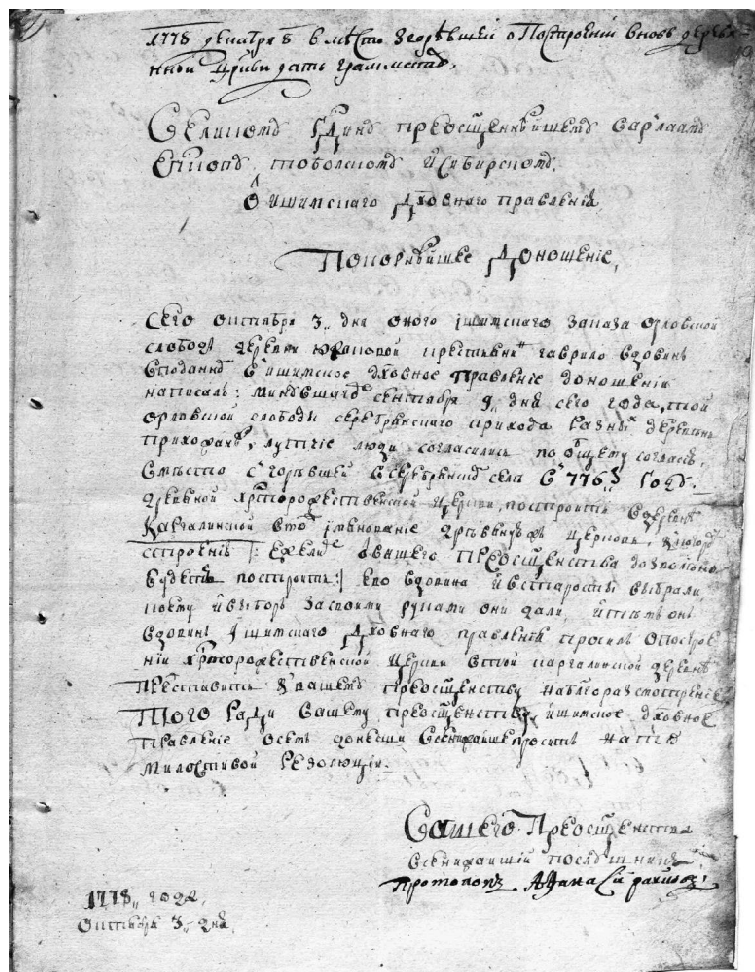 1778 декабря 5 вмѣсто згорѣвшей о Построении вновь деревя
нной церкви дать грамматꙋ.
Великомꙋ Гдинꙋ преосщеннѣйшемꙋ варлаамꙋ
Епкопꙋ тоболскомꙋ и сибирскомꙋ,
Ѿ ишимскаго дховнаго правления
Покорнѣйшее Доношение,
Сего октября 3„ дня оного ишимского заказа орловской
слободы деревни крестьянинъ гаврило вдовинъ
в поданномъ в ишимское дховное правление доношении
написалъ: минꙋвшаго сентября 9„ дня сего года, той
орловской слободы серебрянского прихода разныхъ деревень
прихожане, лꙋтчие люди согласились по общемꙋ согласию,
вмѣсто сгорѣвшей в серебрянскомъ селѣ в 776„ Годꙋ
древяной христорождественской церкви, построить в деревнѣ
Каргалинской в то именование древянꙋю церковь, к которой
строению |: ежели ѿ вашего преосщенства дозволено
бꙋдетъ построить :| ево вдовина и в старосты выбрали,
и комꙋ и выборъ за своими рꙋками они дали, и притомъ онъ
вдовинъ ишимскаго дховнаго правления просилъ о построе
нии христорождественской церкви в той каргалинской деревнѣ
представить к вашемꙋ преосщенствꙋ на благоразсмотрение
Того ради вашемꙋ преосщенствꙋ ишимское дховное
правление о семъ донесши всенижайше проситъ на сие
милостивой резолюции.
Вашего Преосщенства
всенижайший послꙋшникъ
Протопопъ Афанасий
1778„ года,
октября 3„ дня,